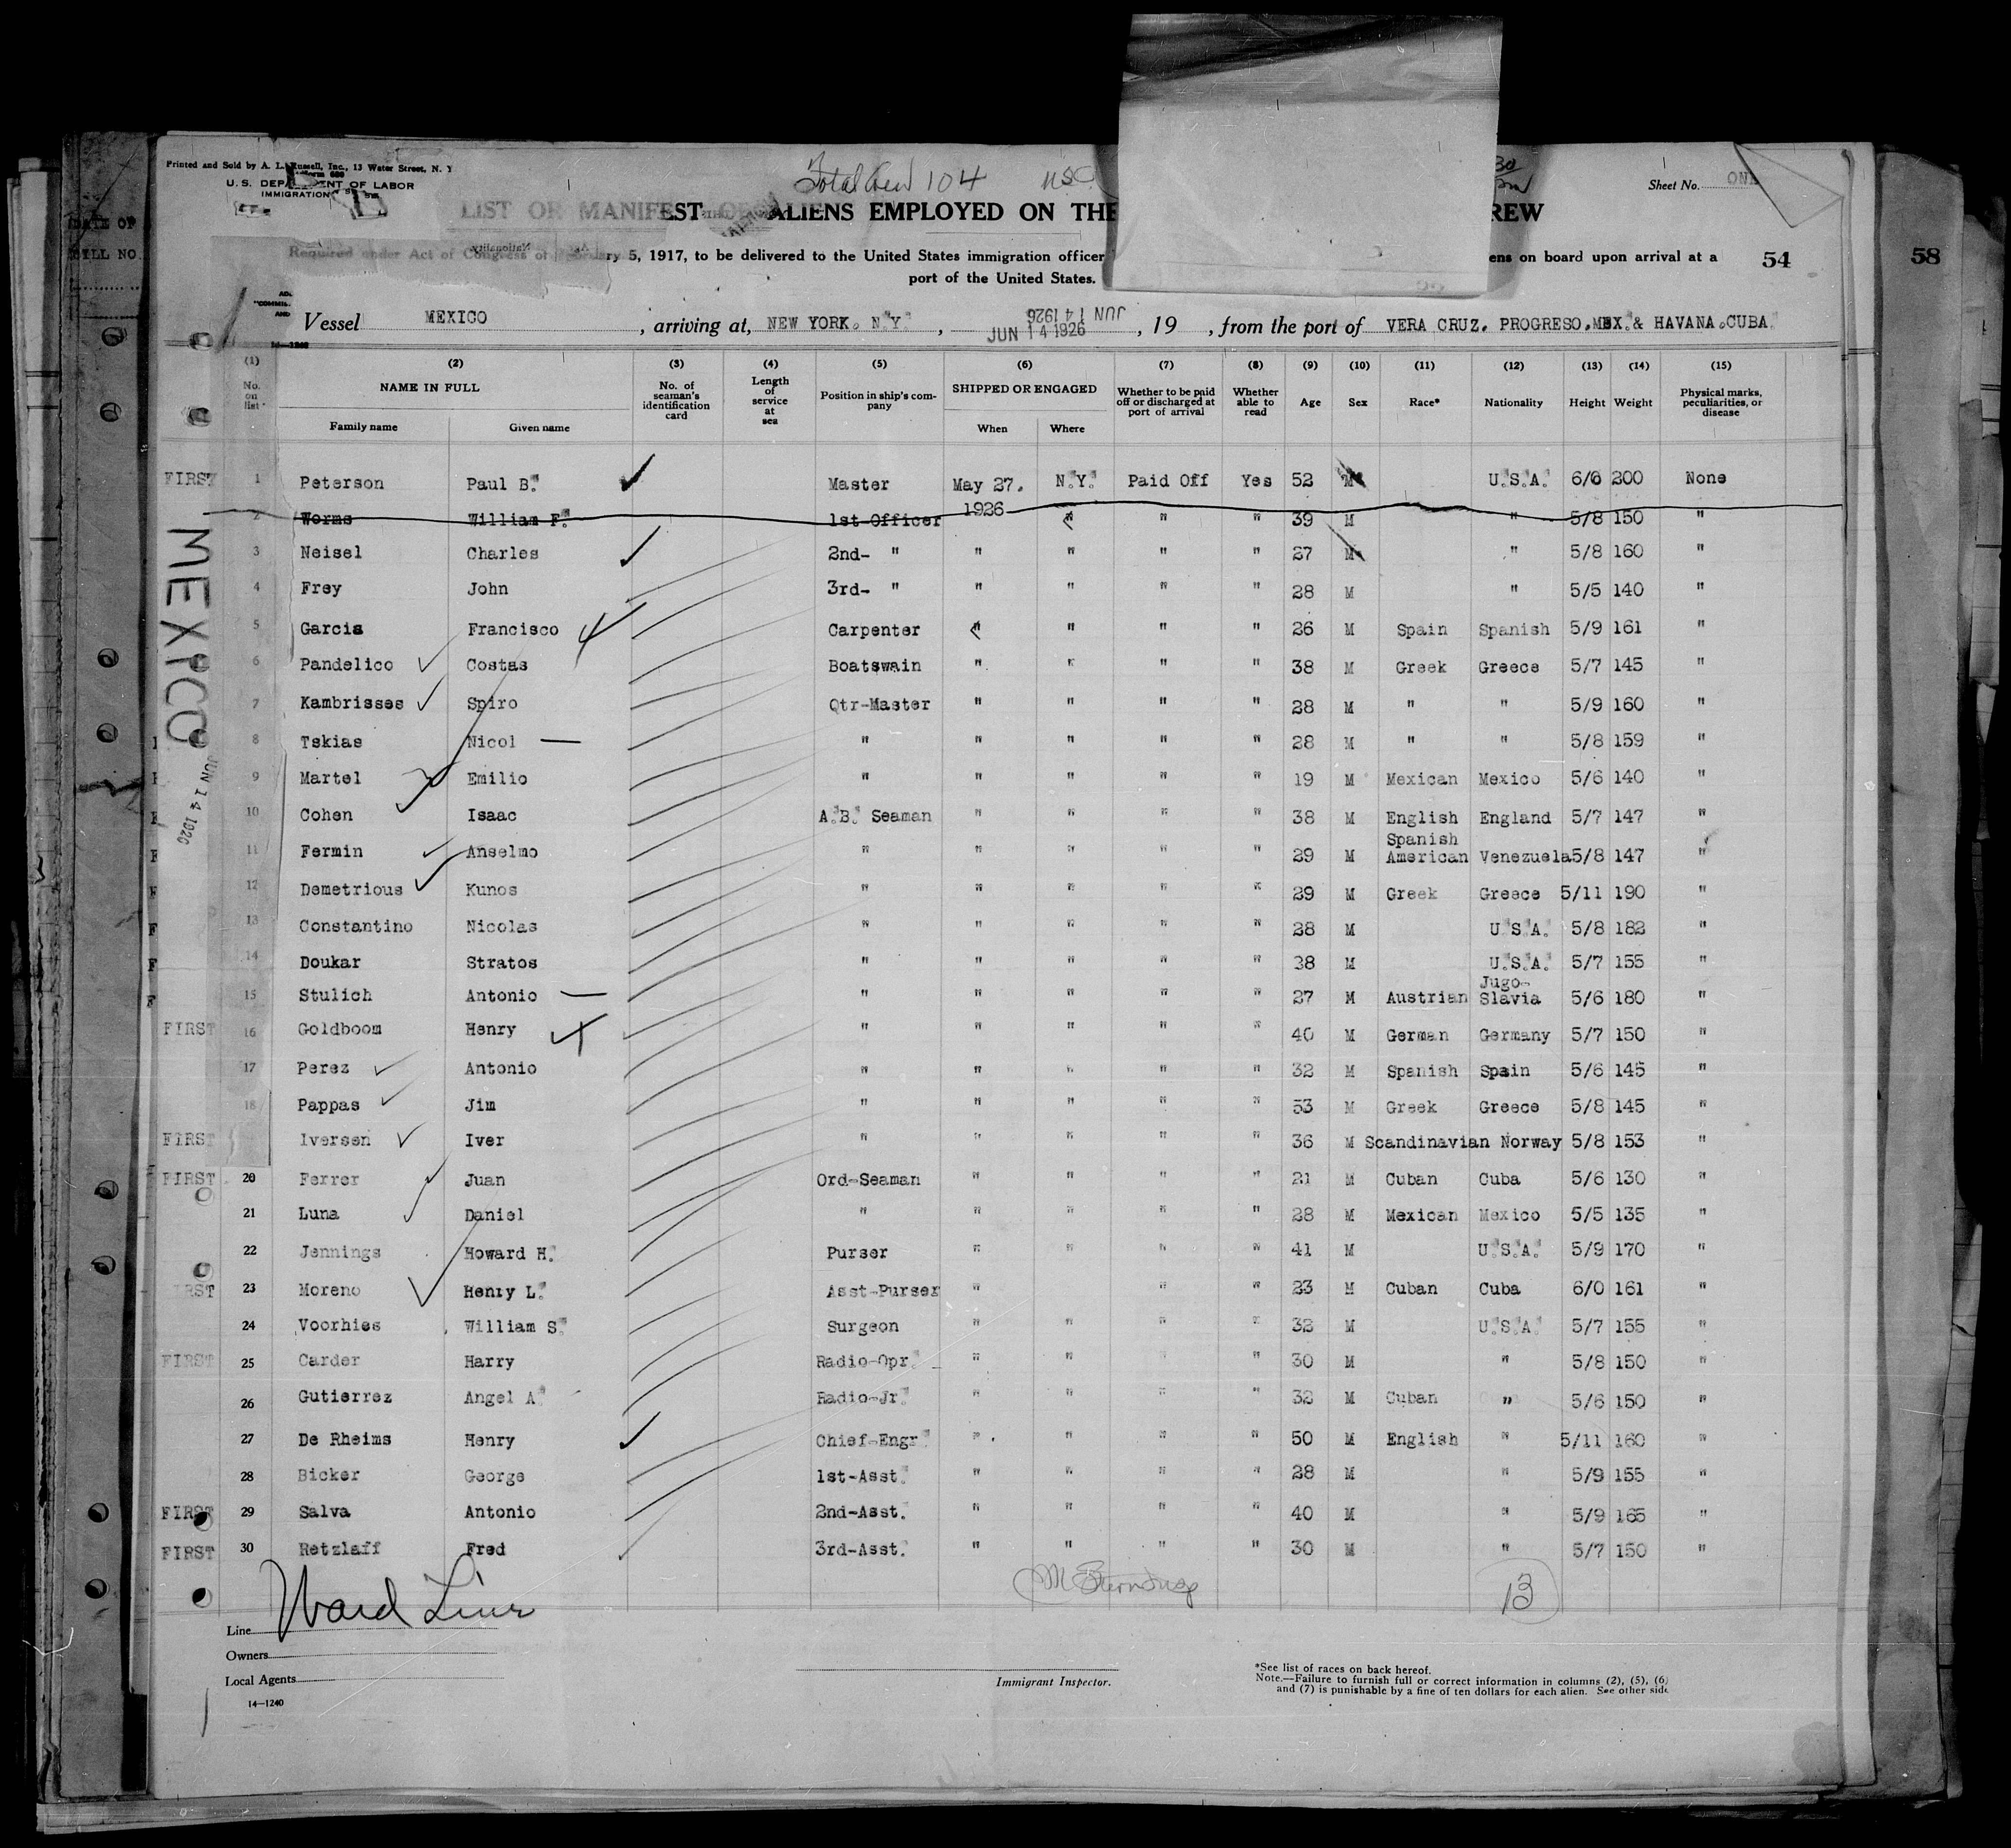 Printed and Sold by A. L. Russell, Inc., 13 Water Street, N. Y
U. S. DEPARTMENT OF LABOR
IMMIGRATION
Total Crew 104
Sheet No. ONE
LIST OR MANIFEST OF ALIENS EMPLOYED ON THE CREW
Required under Act of Congress of February 5, 1917, to be delivered to the United States immigration officer ens on board upon arrival at a
port of the United States.
54
58
DATE OF
BILL NO.
Vessel MEXICO, arriving at, NEW YORK. N.Y., JUN 14 1926, 19 , from the port of VERA CRUZ. PROGRESO.MEX.& HAVANA.CUBA.
JUN 14 1926
(1) (2) (3) (4) (5) (6) (7) (8) (9) (10) (11) (12) (13) (14) (15)
No. on list NAME IN FULL Family name Given name No. of seaman's identification card Length of service at sea Position in ship's company SHIPPED OR ENGAGED When Where Whether to be paid off or discharged at port of arrival Whether able to read Age Sex Race* Nationality Height Weight Physical marks, peculiarities, or disease
FIRST 1 Peterson Paul B. Master May 27, 1926 N.Y. Paid Off Yes 52 M U.S.A. 6/0 200 None
2 Worms William F. 1st-Officer " " " 39 M " 5/8 150 "
3 Neisel Charles 2nd- " " " " " 27 M " 5/8 160 "
4 Frey John 3rd- " " " " " 28 M " 5/5 140 "
5 Garcia Francisco Carpenter " " " " 26 M Spain Spanish 5/9 161 "
6 Pandelico Costas Boatswain " " " " 38 M Greek Greece 5/7 145 "
7 Kambrisses Spiro Qtr-Master " " " " 28 M " " 5/9 160 "
8 Tskias Nicol " " " " " 28 M " " 5/8 159 "
9 Martel Emilio " " " " " 19 M Mexican Mexico 5/6 140 "
10 Cohen Isaac A.B. Seaman " " " " 38 M English England 5/7 147 "
11 Fermin Anselmo " " " " " 29 M Spanish American Venezuela 5/8 147 "
12 Demetrious Kunos " " " " " 29 M Greek Greece 5/11 190 "
13 Constantino Nicolas " " " " " 28 M U.S.A. 5/8 182 "
14 Doukar Stratos " " " " " 38 M U.S.A. 5/7 155 "
15 Stulich Antonio " " " " " 27 M Austrian Jugo-Slavia 5/6 180 "
FIRST 16 Goldboom Henry " " " " " 40 M German Germany 5/7 150 "
17 Perez Antonio " " " " " 32 M Spanish Spain 5/6 145 "
18 Pappas Jim " " " " " 53 M Greek Greece 5/8 145 "
FIRST Iversen Iver " " " " " 36 M Scandinavian Norway 5/8 153 "
FIRST 20 Ferrer Juan Ord-Seaman " " " " 21 M Cuban Cuba 5/6 130 "
21 Luna Daniel " " " " " 28 M Mexican Mexico 5/5 135 "
22 Jennings Howard H. Purser " " " " 41 M U.S.A. 5/9 170 "
RST 23 Moreno Henry L. Asst-Purser " " " 23 M Cuban Cuba 6/0 161 "
24 Voorhies William S. Surgeon " " " " 32 M U.S.A. 5/7 155 "
FIRST 25 Carder Harry Radio-Opr. " " " " 30 M " 5/8 150 "
26 Gutierrez Angel A. Radio-Jr. " " " " 32 M Cuban " 5/6 150 "
27 De Rheims Henry Chief-Engr. " " " " 50 M English " 5/11 160 "
28 Bicker George 1st-Asst. " " " " 28 M " 5/9 155 "
FIRST 29 Salva Antonio 2nd-Asst. " " " " 40 M " 5/9 165 "
FIRST 30 Retzlaff Fred 3rd-Asst. " " " " 30 M " 5/7 150 "
MEXICO
JUN 14 1926
13
Line Ward Line
Owners
Local Agents
14—1240
Immigrant Inspector.
*See list of races on back hereof.
Note.—Failure to furnish full or correct information in columns (2), (5), (6)
and (7) is punishable by a fine of ten dollars for each alien. See other side